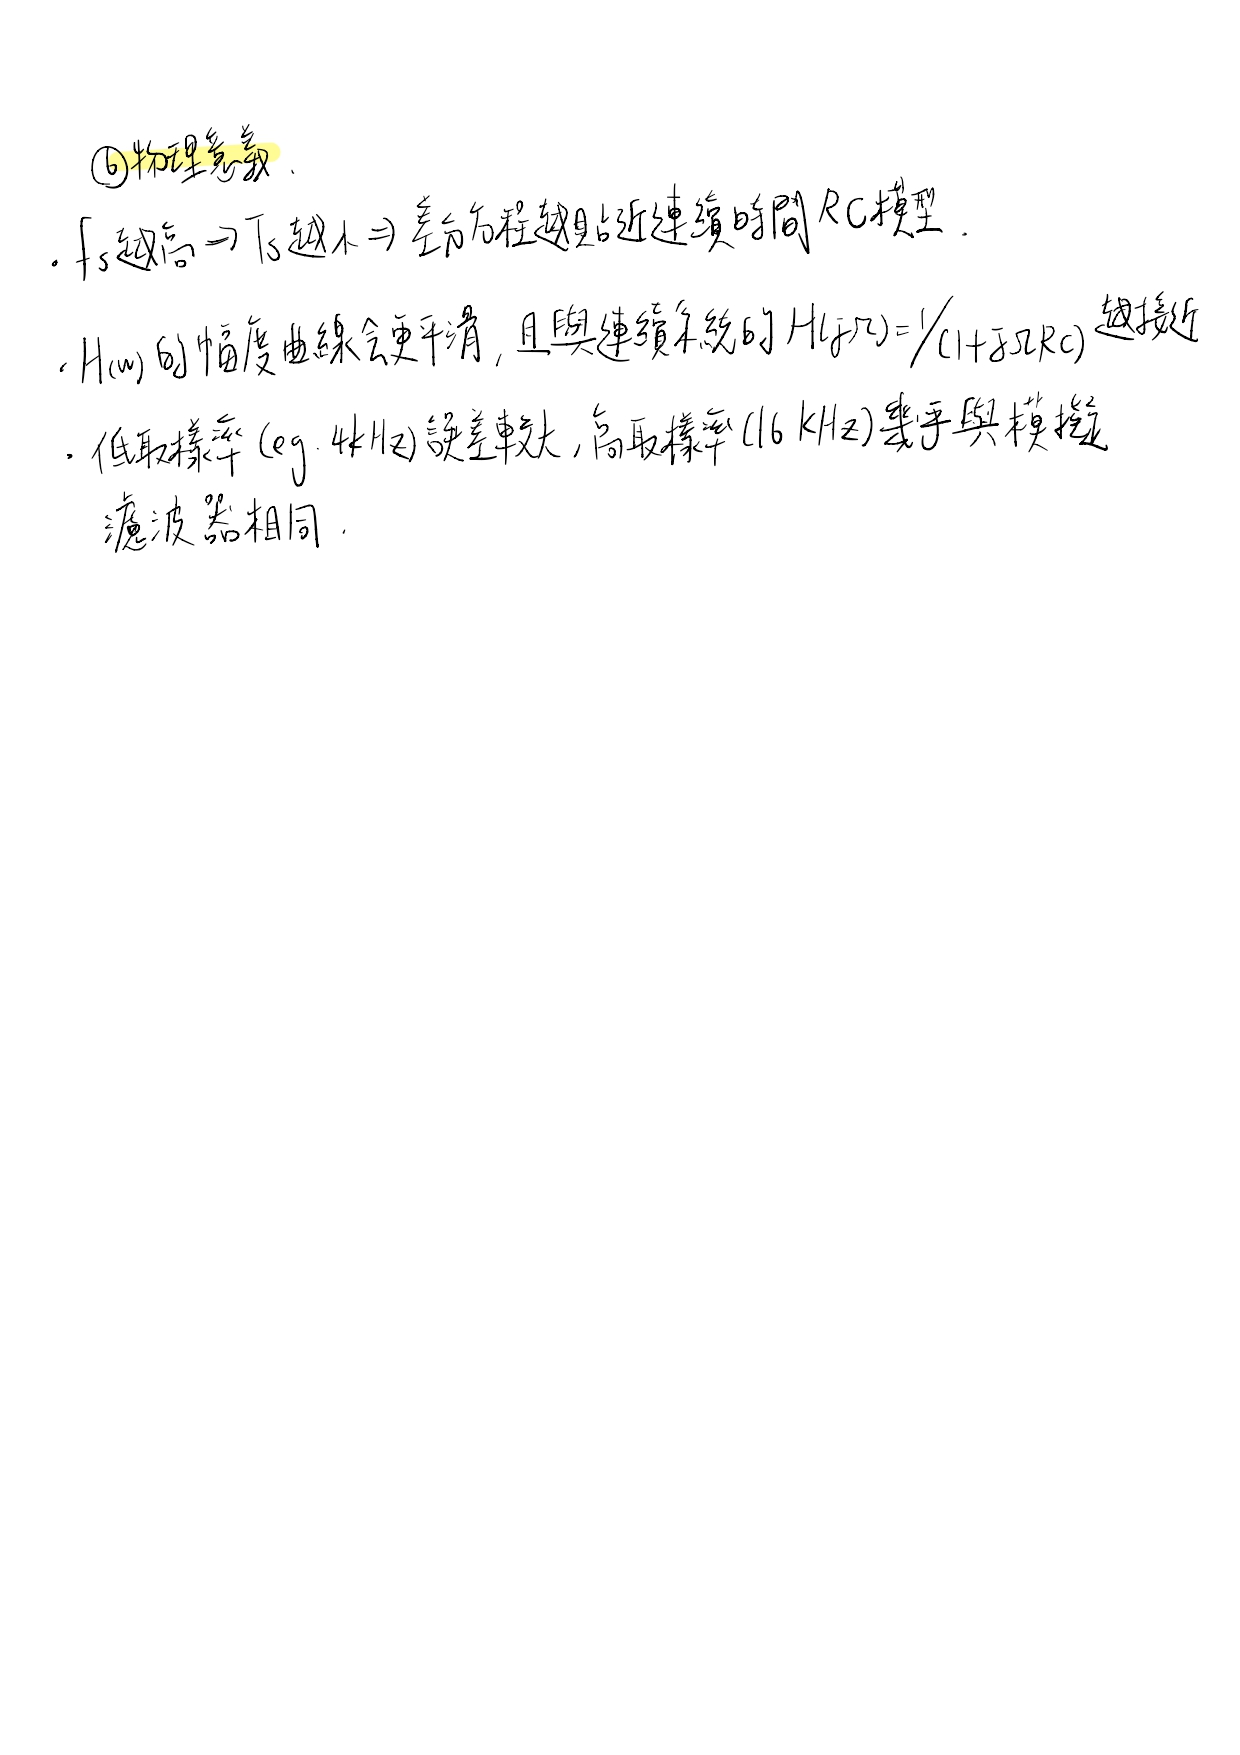 ⑥物理意義.
· fs越高→Ts越小⇒差分方程越貼近連續時間RC模型.
· H(w)的幅度曲線会更平滑,且與連續系統的H(jΩ)=1/(1+jΩRC)越接近
· 低取樣率(eg.4kHz)誤差較大,高取樣率(16kHz)幾乎與模擬
濾波器相同.